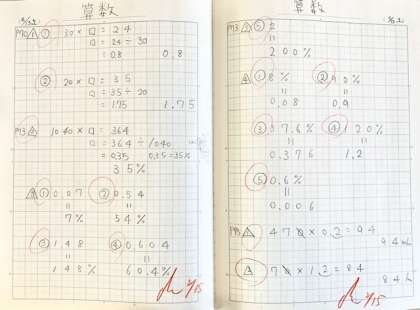 算数
P110 △1 ① 30 × □ = 24
□ = 24 ÷ 30
= 0.8 0.8
② 20 × □ = 35
□ = 35 ÷ 20
= 1.75 1.75
P113 1040 × □ = 364
□ = 364 ÷ 1040
= 0.35 0.35=35%
35%
① 0.07 ② 0.54
= =
7% 54%
③ 1.48 ④ 0.604
= =
148% 60.4%
2/15
算数
P113 ⑤ 2
=
200%
① 8% ② 90%
= =
0.08 0.9
③ 37.6% ④ 120%
= =
0.376 1.2
⑤ 0.6%
=
0.006
470 × 0.2 = 94
70 × 1.2 = 84
2/15